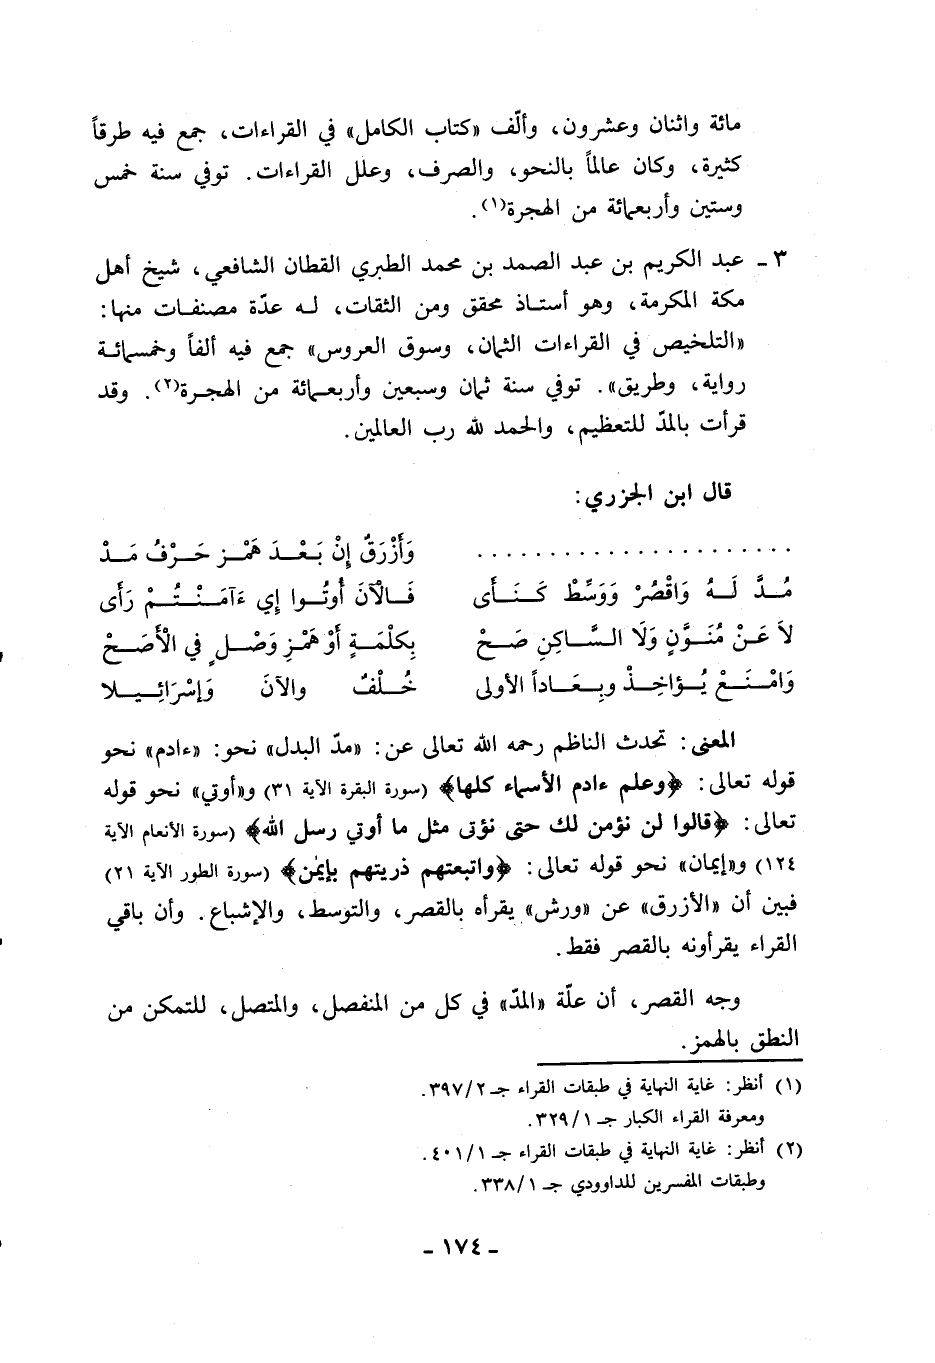 مائة واثنان وعشرون، وألّف «كتاب الكامل» في القراءات، جمع فيه طرقاً
كثيرة، وكان عالماً بالنحو، والصرف، وعلل القراءات. توفي سنة خمس
وستين وأربعمائة من الهجرة(١).
٣ ـ عبد الكريم بن عبد الصمد بن محمد الطبري القطان الشافعي، شيخ أهل
مكة المكرمة، وهو أستاذ محقق ومن الثقات، له عدّة مصنفات منها:
«التلخيص في القراءات الثمان، وسوق العروس» جمع فيه ألفاً وخمسمائة
رواية، وطريق». توفي سنة ثمان وسبعين وأربعمائة من الهجرة(٢). وقد
قرأت بالمدّ للتعظيم، والحمد لله رب العالمين.
قال ابن الجزري:
...................... وَأَزْرَقٌ إِنْ بَعْدَ هَمْزٍ حَرْفُ مَدْ
مُدَّ لَهُ وَاقْصُرْ وَوَسِّطْ كَنَأَى فَالْآنَ أُوتُوا إِي ءَآمَنْتُمْ رَأَى
لاَ عَنْ مُنَوَّنٍ وَلَا السَّاكِنِ صَحْ بِكَلْمَةٍ أَوْ هَمْزِ وَصْلٍ فِي الْأَصَحْ
وَامْنَعْ يُؤَاخِذْ وبِعَاداً الأولى خُلْفٌ والآنَ وَإِسْرَائِيلا
المعنى: تحدث الناظم رحمه الله تعالى عن: «مدّ البدل» نحو: «ءادم» نحو
قوله تعالى: ﴿وعلم ءادم الأسماء كلها﴾ (سورة البقرة الآية ٣١) و«أوتي» نحو قوله
تعالى: ﴿قالوا لن نؤمن لك حتى نؤتى مثل ما أوتي رسل الله﴾ (سورة الأنعام الآية
١٢٤) و«إيمان» نحو قوله تعالى: ﴿واتبعتهم ذريتهم بإيمٰن﴾ (سورة الطور الآية ٢١)
فبين أن «الأزرق» عن «ورش» يقرأه بالقصر، والتوسط، والإشباع. وأن باقي
القراء يقرأونه بالقصر فقط.
وجه القصر، أن علّة «المدّ» في كل من المنفصل، والمتصل، للتمكن من
النطق بالهمز.
(١) أنظر: غاية النهاية في طبقات القراء جـ ٣٩٧/٢.
ومعرفة القراء الكبار جـ ٣٢٩/١.
(٢) أنظر: غاية النهاية في طبقات القراء جـ ٤٠١/١.
وطبقات المفسرين للداوودي جـ ٣٣٨/١.
ـ ١٧٤ ـ